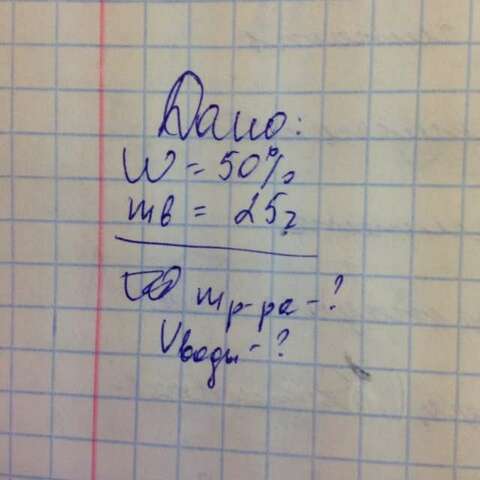 Дано:
W = 50%
mв = 25г
mр-ра - ?
Vводы - ?